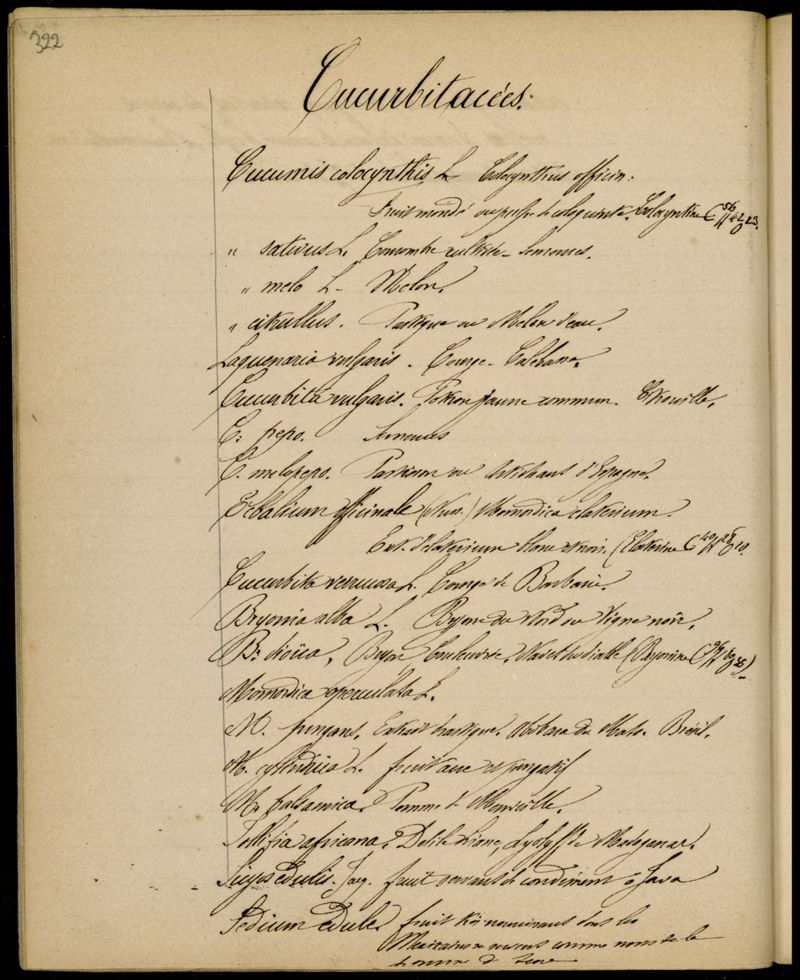 322
Cucurbitacées.
Cucumis colocynthis L. Colocynthus officin.
Fruit mondé ou pulpe de coloquinte. Colocyntine C 56 H 42 O 23.
" sativus L. Concombre cultivé - Semences.
" melo L - Melon.
" citrullus. Pastèque ou Melon d'eau.
Laguenaria vulgaris. Courge - Calebasse.
Cucurbita vulgaris. Potiron jaune commun. Citrouille.
C. pepo. Semences
C. melopepo. Patisson ou Artichaut d'Espagne.
Ecbalium officinale (Nees) Momordica elaterium.
Ext. d'elaterium blanc et noir. (Elaterine C 40 H 28 O 10.
Cucurbita verrucosa L. Courge de Barbarie.
Bryonia alba L. Bryone du Nord ou Vigne noire.
B. dioïca, Bryone Couleuvrée, Navet du diable (Bryonine
Momordica operculata L.
M. purgans. Extrait drastique. Brésil.
M. cylindrica L. fruit âcre et purgatif
M. balsamica. Pomme de Merveille.
africana. Delile Liane, de Madagascar.
Sicyos edulis. Jaq. fruit servant de condiment à Java
Sedium edule fruit très nourrissant dont les
Mexicains se servent comme nous de la
pomme de terre